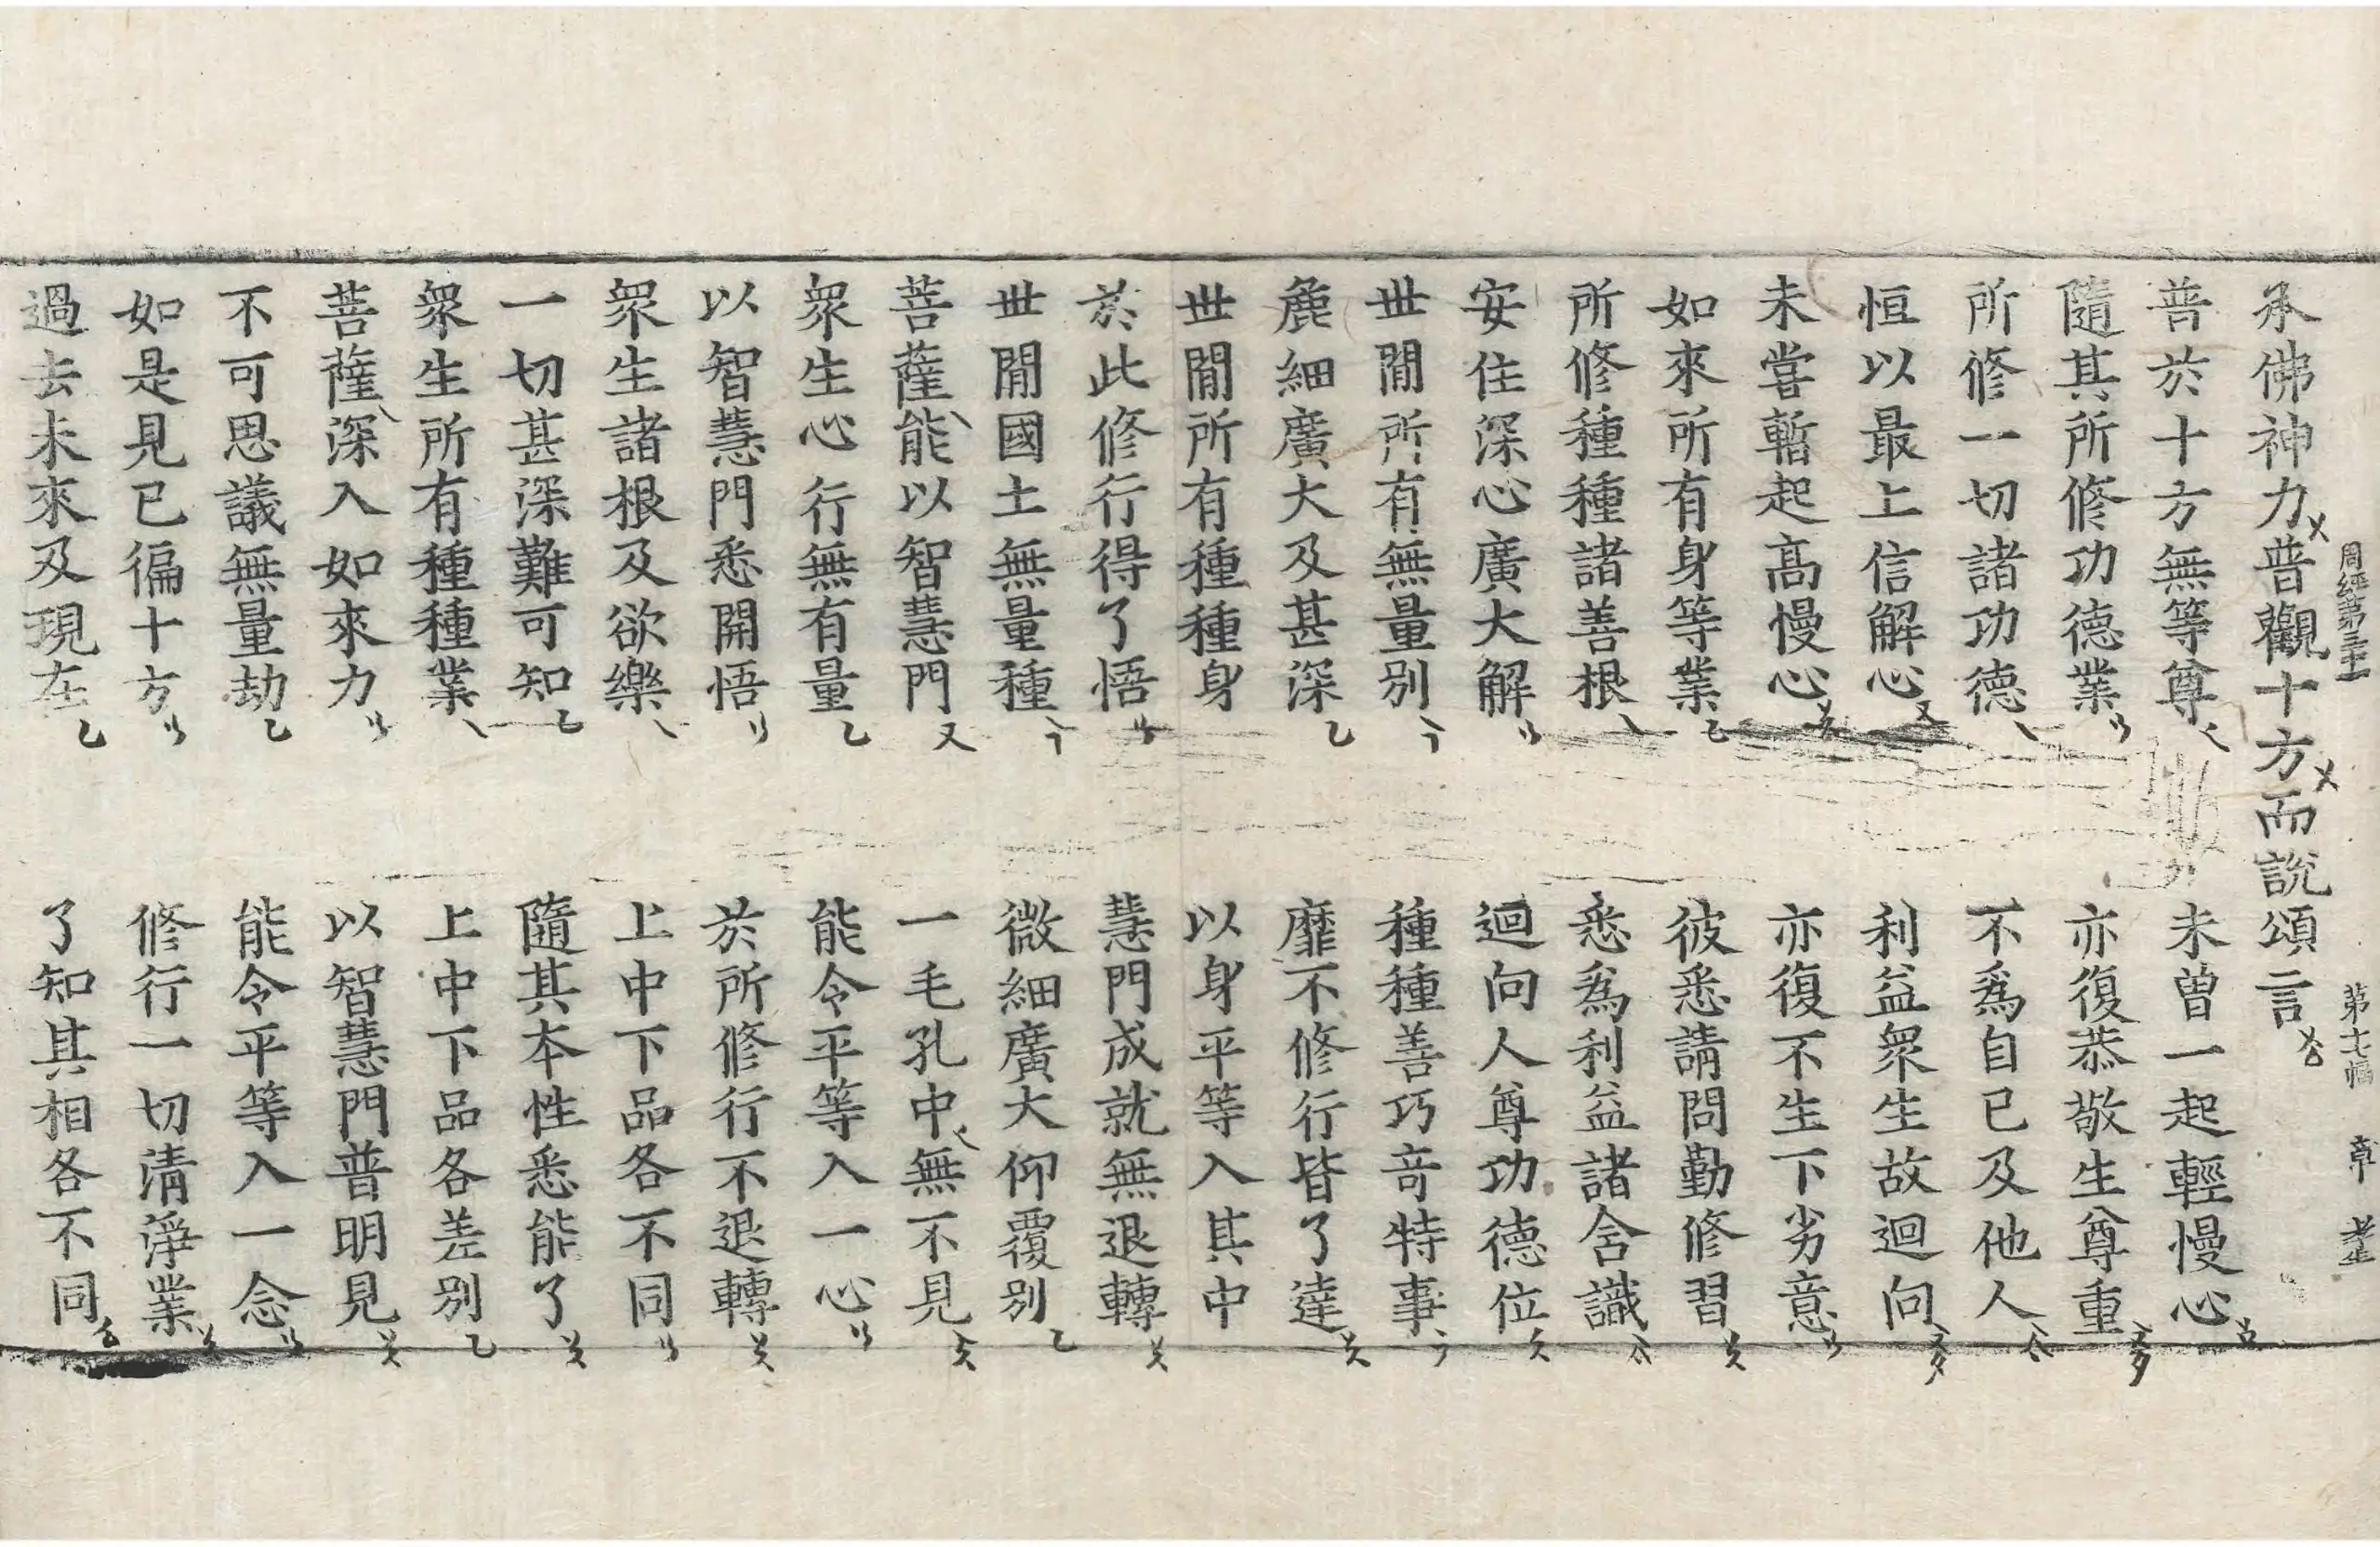 周經第三十
第十七幅
承佛神力普觀十方而說頌言
普於十方無等尊 未曾一起輕慢心
隨其所修功德業 亦復恭敬生尊重
所修一切諸功德 不爲自已及他人
恒以最上信解心 利益衆生故迴向
未甞暫起高慢心 亦復不生下劣意
如來所有身等業 彼悉請問勤修習
所修種種諸善根 悉爲利益諸含識
安住深心廣大解 迴向人尊功德位
世閒所有無量別 種種善巧奇特事
麁細廣大及甚深 靡不修行皆了達
世閒所有種種身 以身平等入其中
於此修行得了悟 慧門成就無退轉
世閒國土無量種 微細廣大仰覆別
菩薩能以智慧門 一毛孔中無不見
衆生心行無有量 能令平等入一心
以智慧門悉開悟 於所修行不退轉
衆生諸根及欲樂 上中下品各不同
一切甚深難可知 隨其本性悉能了
衆生所有種種業 上中下品各差別
菩薩深入如來力 以智慧門普明見
不可思議無量劫 能令平等入一念
如是見已徧十方 修行一切清淨業
過去未來及現在 了知其相各不同